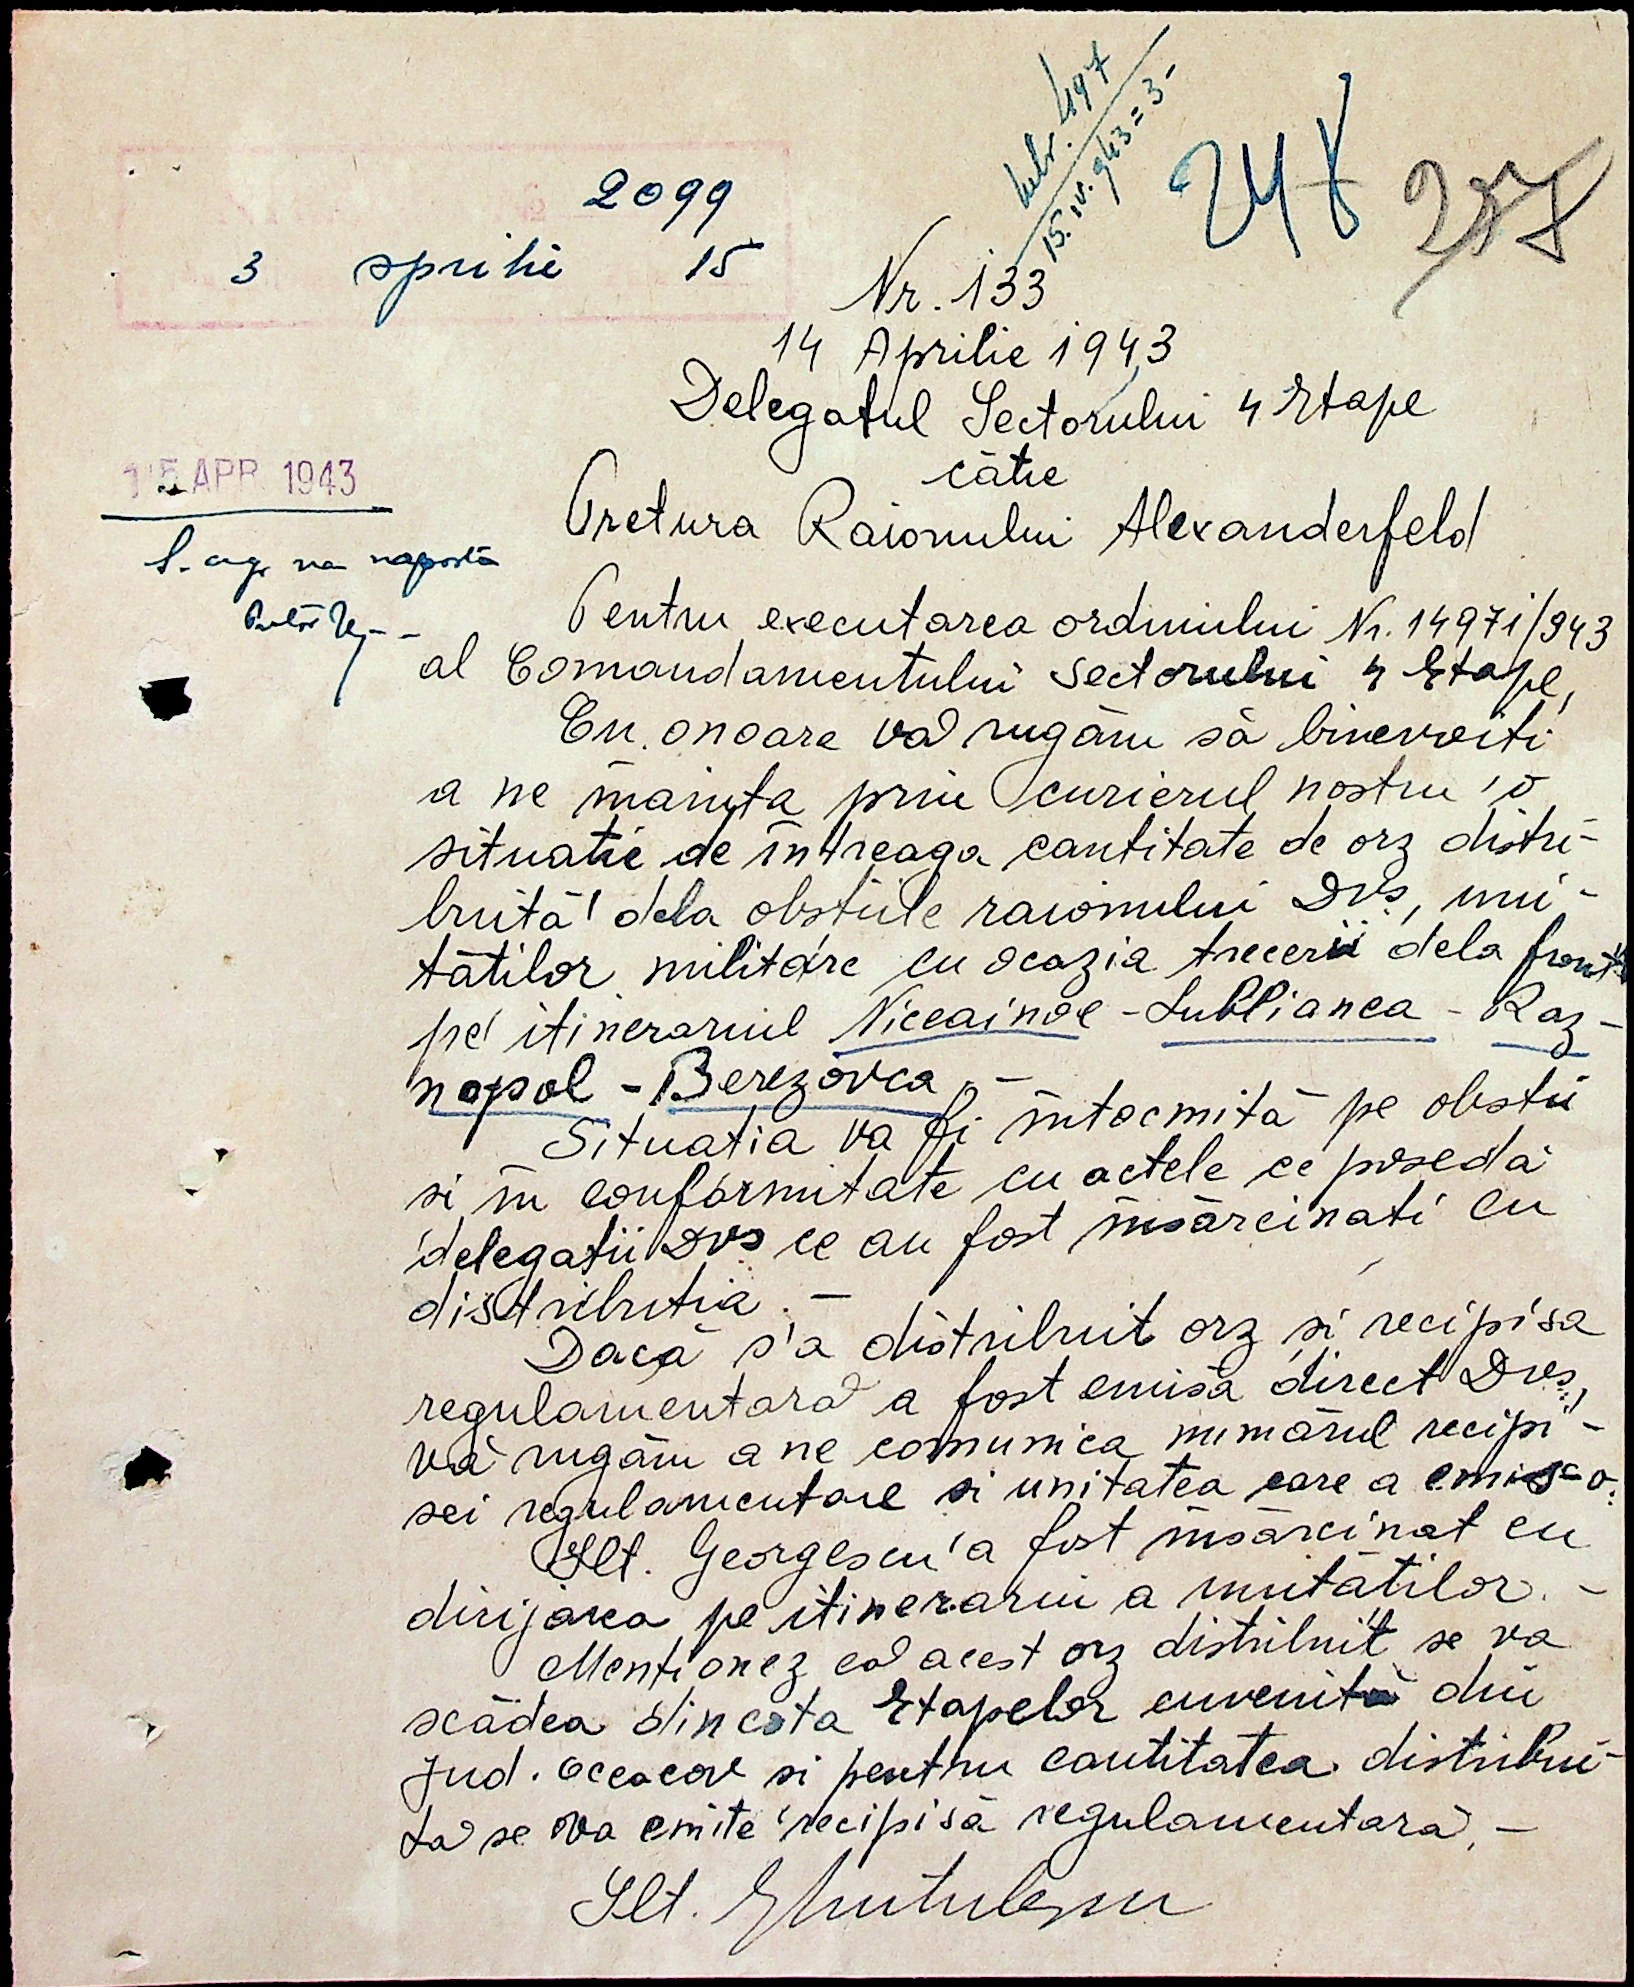 497
15.IV.943=3-
248
2099
3 aprilie 15
Nr. 133
14 Aprilie 1943
Delegatul Sectorului 4 Etape
cătie
15 APR 1943
Pretura Raionului Alexanderfeld
S. ag. va
Pentru executarea ordinului Nr. 14971/943
al Comandamentului Sectorului 4 Etape,
Cu onoare vă rugăm să binevoiti
a ne mainta prin curierul nostru o
situatie de întreaga cantitate de orz distri-
buită dela obstiile raionului Dvs, uni-
tătilor militare cu ocazia trecerii dela front
pe itinerariul Niceainoe - Lublianca - Raz-
nopol - Berezovca. -
Situatia va fi întocmită pe obstii
si în conformitate cu actele ce posedă
delegatii Dvs ce au fost însărcinati cu
distributia. -
Dacă s'a distribuit orz si recipisa
regulamentară a fost emisă direct Dvs,
vă rugăm a ne comunica numărul recipi-
sei regulamentare si unitatea care a emis-o.
Slt. Georgescu a fost însărcinat cu
dirijarea pe itinerariu a unitătilor. -
Mentionez că acest orz distribuit se va
scădea din cota Etapelor cuvenită din
Jud. Oceacov si pentru cantitatea distribui-
tă se va emite recipisă regulamentară. -
Slt.